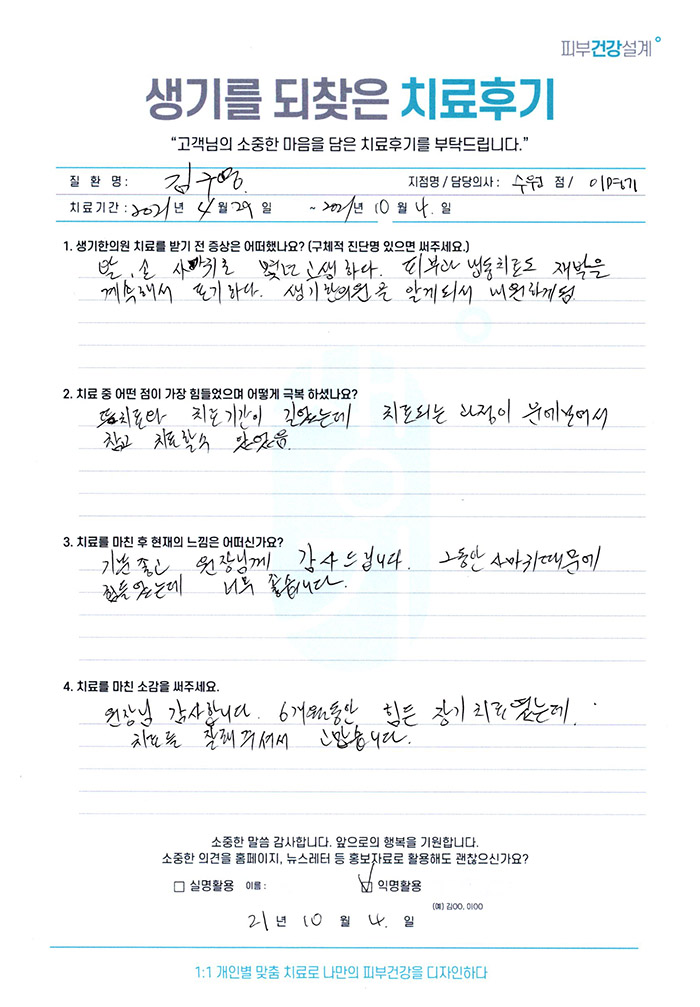 피부건강설계
생기를 되찾은 치료후기
“고객님의 소중한 마음을 담은 치료후기를 부탁드립니다.”
질 환 명 : 지점명 / 담당의사 : 수원 점 /
치료기간 : 2021년 4월 29일 ~ 2021년 10월 4.일
1. 생기한의원 치료를 받기 전 증상은 어떠했나요? (구체적 진단명 있으면 써주세요.)
발, 손 사마귀로 고생하다. 피부과 냉동치료도 재발을
계속해서 포기하다. 생기한의원을 알게되서 내원하게됨
2. 치료 중 어떤 점이 가장 힘들었으며 어떻게 극복 하셨나요?
치료기간이 길었는데 치료되는 과정이 눈에보여서
참고 치료할수 있었음.
3. 치료를 마친 후 현재의 느낌은 어떠신가요?
기분좋고 원장님께 감사드립니다. 그동안 사마귀때문에
힘들었는데 너무 좋습니다.
4. 치료를 마친 소감을 써주세요.
원장님 감사합니다. 6개월동안 힘든 장기치료였는데.
치료를 잘해주셔서 고맙습니다.
소중한 말씀 감사합니다. 앞으로의 행복을 기원합니다.
소중한 의견을 홈페이지, 뉴스레터 등 홍보자료로 활용해도 괜찮으신가요?
□ 실명활용 이름 : ☑ 익명활용
(예) 김OO, 이OO
21년 10월 4.일
1:1 개인별 맞춤 치료로 나만의 피부건강을 디자인하다